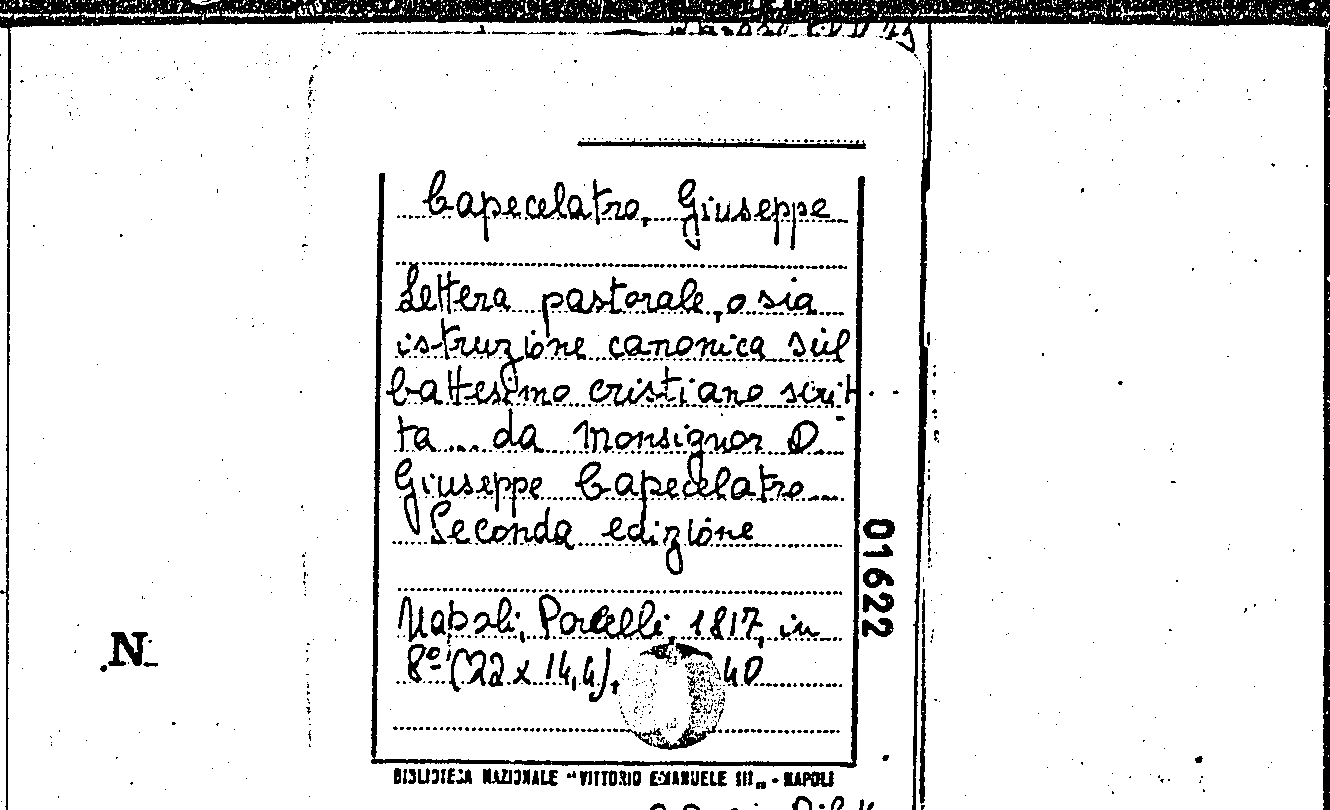 Capecelatro, Giuseppe
Lettera pastorale, o sia
istruzione canonica sul
battesimo cristiano scrit-
ta ... da Monsignor D.
Giuseppe Capecelatro ...
Seconda edizione
01622
Napoli, Porcelli, 1817, in
8º (22 x 14,4), 40
N.
BIBLIOTECA NAZIONALE "VITTORIO EMANUELE III" - NAPOLI